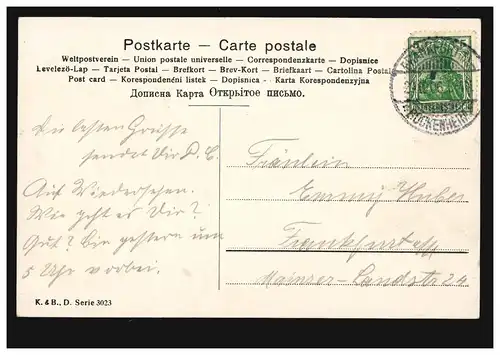 Postkarte – Carte postale
Weltpostverein – Union postale universelle – Correspondenzkarte – Dopisnice
Levelező-Lap – Tarjeta Postal – Brefkort – Brev-Kort – Briefkaart – Cartolina Postale
Post card – Korespondenční listek – Dopisnica – Karta Korespondenzyjna
Дописна Карта Открытое письмо.
BOCKENHEIM
Die besten Grüsse
sendet Dir
Auf Wiedersehen.
Wie geht es Dir?
Gut? Bin gestern um
5 Uhr vorbei.
Fräulein
Emmy Huber
Frankfurt a/M
Mainzer-Landstr 24
K. & B., D. Serie 3023